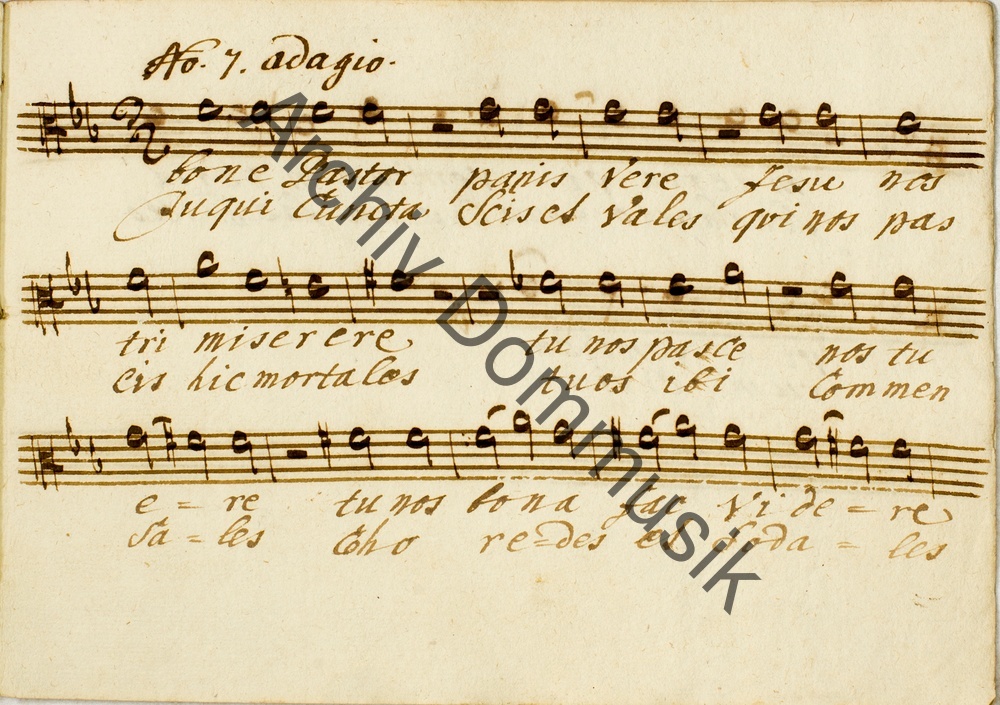 No. 7. adagio.
bone Pastor panis vere Jesu nos
Tu qui Cuncta Scis et vales qui nos pas
tri miserere tu nos pasce nos tu
cis hic mortales tuos ibi Commen
e = re tu nos bona fac vi de = re
Sa = les Coho re = des et Soda = les
Archiv Dommusik